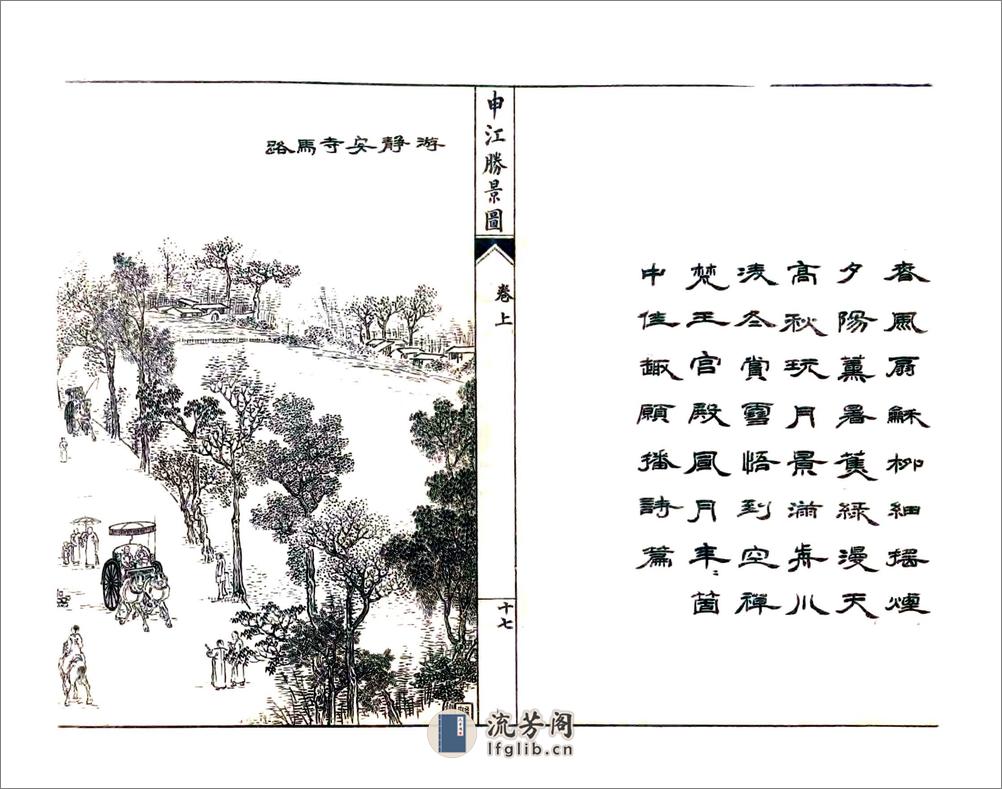 春風扇穌柳細搖煙
夕陽薰暑蕉綠漫天
高秋玩月景滿前川
淩冬賞雪悟到空禪
梵王宮殿風月年〻箇
中佳趣願播詩篇
申江勝景圖
卷上
十七
游靜安寺馬路
流芳阁
lfglib.cn